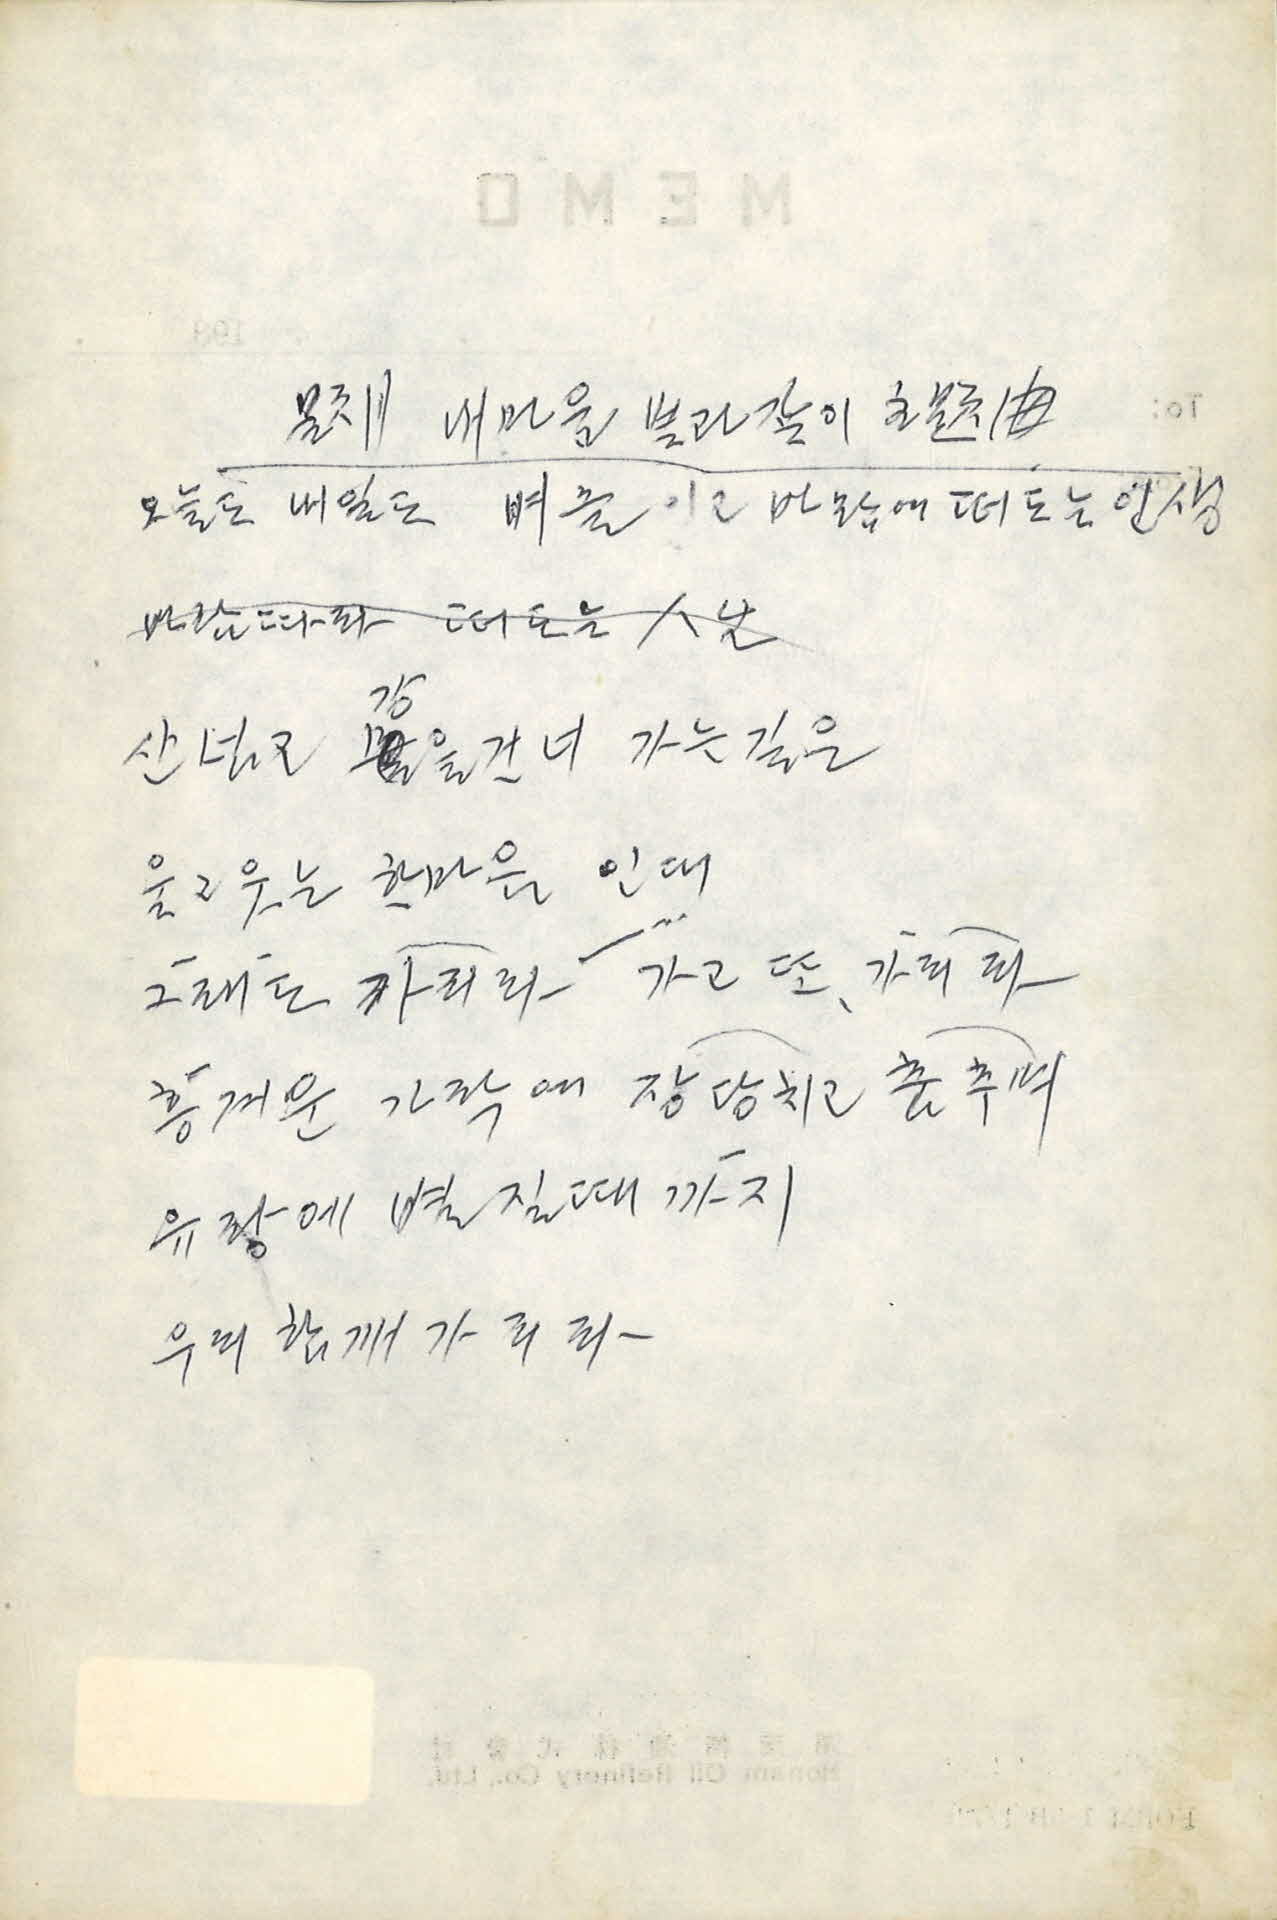 내마음 별과같이
오늘도 내일도 벼를 이고 바람에 떠도는 인생
바람따라 떠도는 人生
산 넘고 강을 건너 가는길은
울고웃는 한마음 인데
그래도 가리라 가고 또 가리라
흥겨운 가락에 장단치고 춤추며
유랑에 별 질때 까지
우리 함께 가리라
MEMO
198
To:
Honam Oil Refinery Co., Ltd.